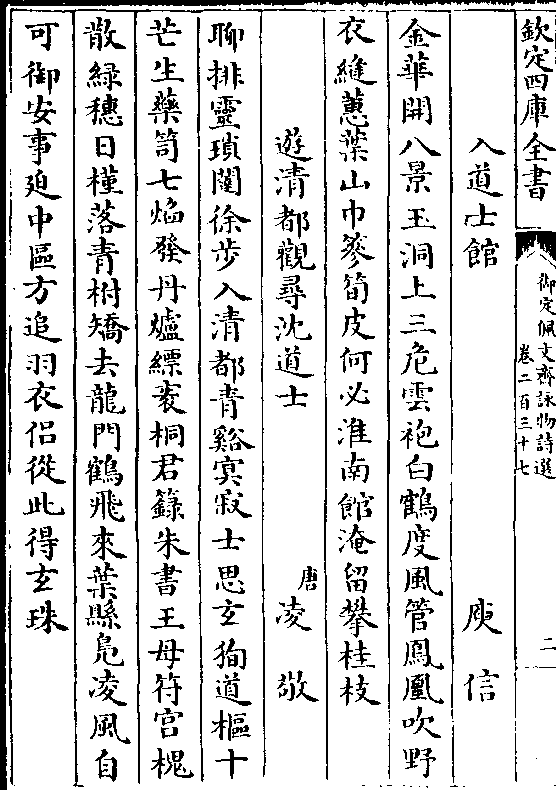 欽定四庫全書
御定佩文齋詠物詩選
卷二百三十七
二
入道士館
庾信
金華開八景玉洞上三危雲袍白鶴度風管鳳凰吹野
衣縫蕙葉山巾篸筍皮何必淮南館淹留攀桂枝
遊清都觀尋沈道士
唐凌敬
聊排靈瑣闥徐步入清都青谿冥寂士思玄狥道樞十
芒生藥笥七焰發丹爐縹袠桐君籙朱書王母符宮槐
散綠穗日槿落青柎矯去龍門鶴飛來葉縣鳧凌風自
可御安事迫中區方追羽衣侶從此得玄珠